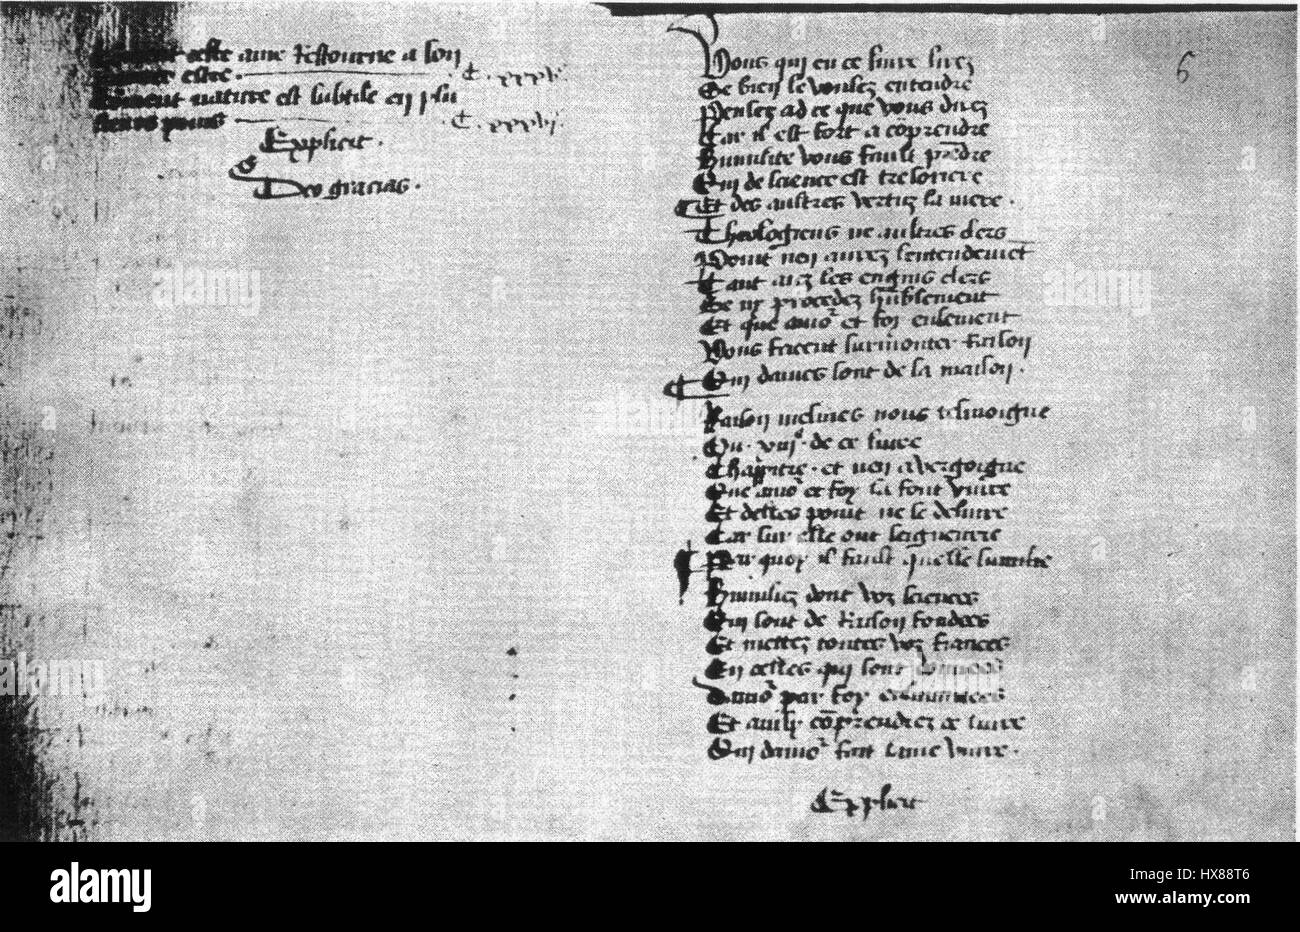 Comment ceste ame retourne a son
premier estre. C. xxxv
Comment nature est subtile en plu
sieurs poins C. xxxvi
Explicit.
Deo gracias.
6
Vous qui en ce livre lirez
Se bien le voulez entendre
Pensez ad ce que vous direz
Car il est fort a cōprendre
Humilite vous fault prēdre
Qui de science est tresoriere
Et des aultres vertuz la mere.
Theologiens ne aultres clers
Point nen aurez lentendement
Tant aiez les engins clers
Se ny procedez hūblement
Et que amor et foy enlement
Vous facent surmonter raison
Qui dames sont de la maison.
Raison meismes nous tesmoigne
Ou. viije. de ce livre
Chapitre. et nen a vergoigne
Que amor et foy la font vivre
Et delles point ne se delivre
Car sur elle ont seignourie
Par quoy il fault quelle sumilie
Humiliez dont voz sciences
Qui sont de raison fondees
Et mettez toutes voz fiances
En celles qui sont donnees
Damor par foy enluminees
Et aussy cōprendrez ce livre
Qui damor fait lame vivre.
Explicit
alamy
Image ID: HX88T6
www.alamy.com